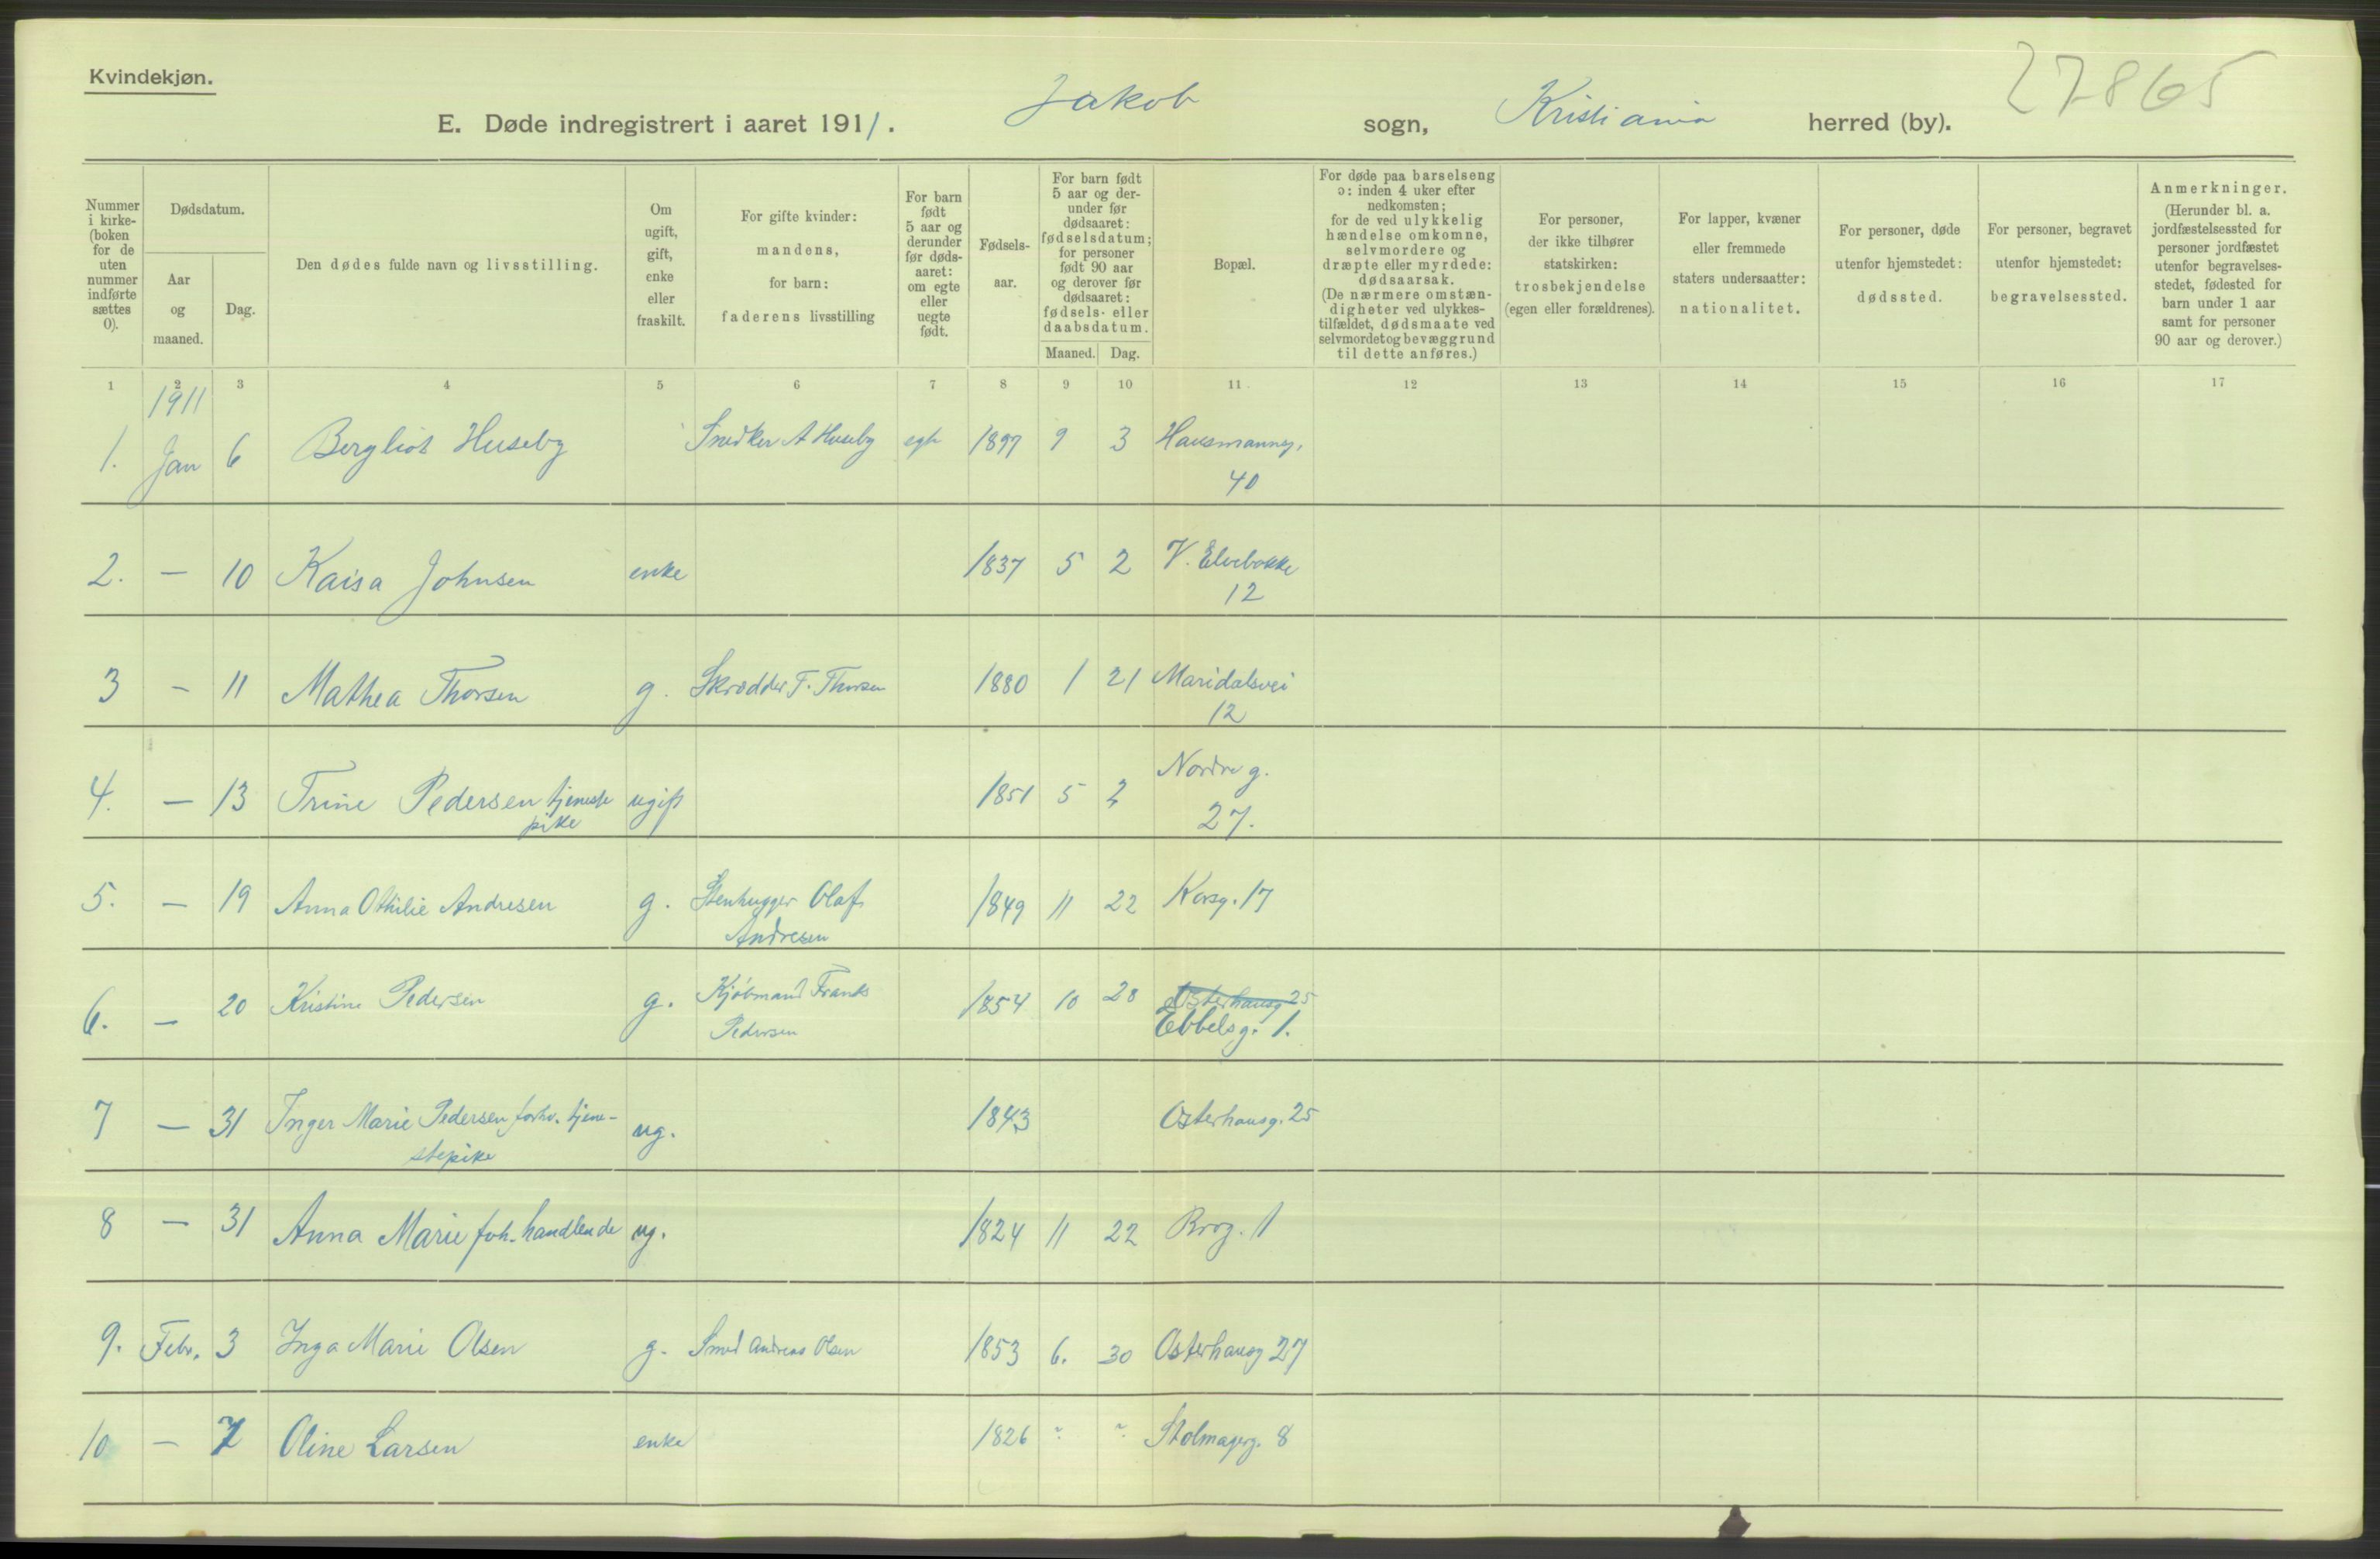 Kvindekjøn.
27865
E. Døde indregistrert i aaret 1911. Jakob sogn, Kristiania herred (by).
Nummer i kirke-(boken for de uten nummer indførte sættes 0).
Dødsdatum.
Aar og maaned.
Dag.
Den dødes fulde navn og livsstilling.
Om ugift, gift, enke eller fraskilt.
For gifte kvinder: mandens, for barn: faderens livsstilling
For barn født 5 aar og derunder før døds-aaret: om egte eller uegte født.
Fødsels-aar.
For barn født 5 aar og der-under før dødsaaret: fødselsdatum; for personer født 90 aar og derover før dødsaaret: fødsels- eller daabsdatum.
Maaned. Dag.
Bopæl.
For døde paa barselseng ɔ: inden 4 uker efter nedkomsten; for de ved ulykkelig hændelse omkomne, selvmordere og dræpte eller myrdede: dødsaarsak. (De nærmere omstæn-digheter ved ulykkes-tilfældet, dødsmaate ved selvmordet og bevæggrund til dette anføres.)
For personer, der ikke tilhører statskirken: trosbekjendelse (egen eller forældrenes).
For lapper, kvæner eller fremmede staters undersaatter: nationalitet.
For personer, døde utenfor hjemstedet: dødssted.
For personer, begravet utenfor hjemstedet: begravelsessted.
Anmerkninger. (Herunder bl. a. jordfæstelsessted for personer jordfæstet utenfor begravelses-stedet, fødested for barn under 1 aar samt for personer 90 aar og derover.)
1 2 3 4 5 6 7 8 9 10 11 12 13 14 15 16 17
1911
1. Jan 6 Bergliot Huseby Snedker A Huseby egte 1897 9 3 Hausmannsg.
40
2. — 10 Kaisa Johnsen enke 1837 5 2 V. Elvebakke
12
3 — 11 Mathea Thorsen g. Skrædder F. Thorsen 1880 1 21 Maridalsvei
12
4. — 13 Trine Pedersen tjeneste ugift 1851 5 2 Nordre g.
pike 27.
5. — 19 Anna Othilie Andresen g. Stenhugger Olaf 1849 11 22 Korsg. 17
Andresen
6. — 20 Kristine Pedersen g. Kjøbmand Frants 1854 10 28 Osterhausg 25
Pedersen Ebbelsg. 1.
7 — 31 Inger Marie Pedersen forhv. tjene- ug. 1843 Osterhausg. 25
stepike
8 — 31 Anna Marie foh. handlende ug. 1824 11 22 Brog. 11
9. Febr. 3 Inga Marie Olsen g. Smed Andreas Olsen 1853 6. 30 Osterhausg 27
10 — 7 Oline Larsen enke 1826 ~ ~ Stolmagerg. 8